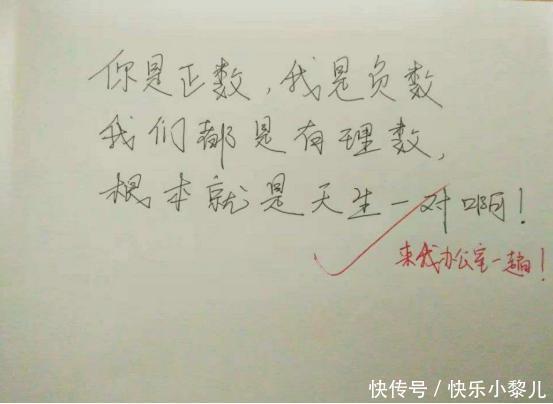 你是正数，我是负数
我们都是有理数，
根本就是天生一对啊！
来我办公室一趟！
快传号／快乐小黎儿